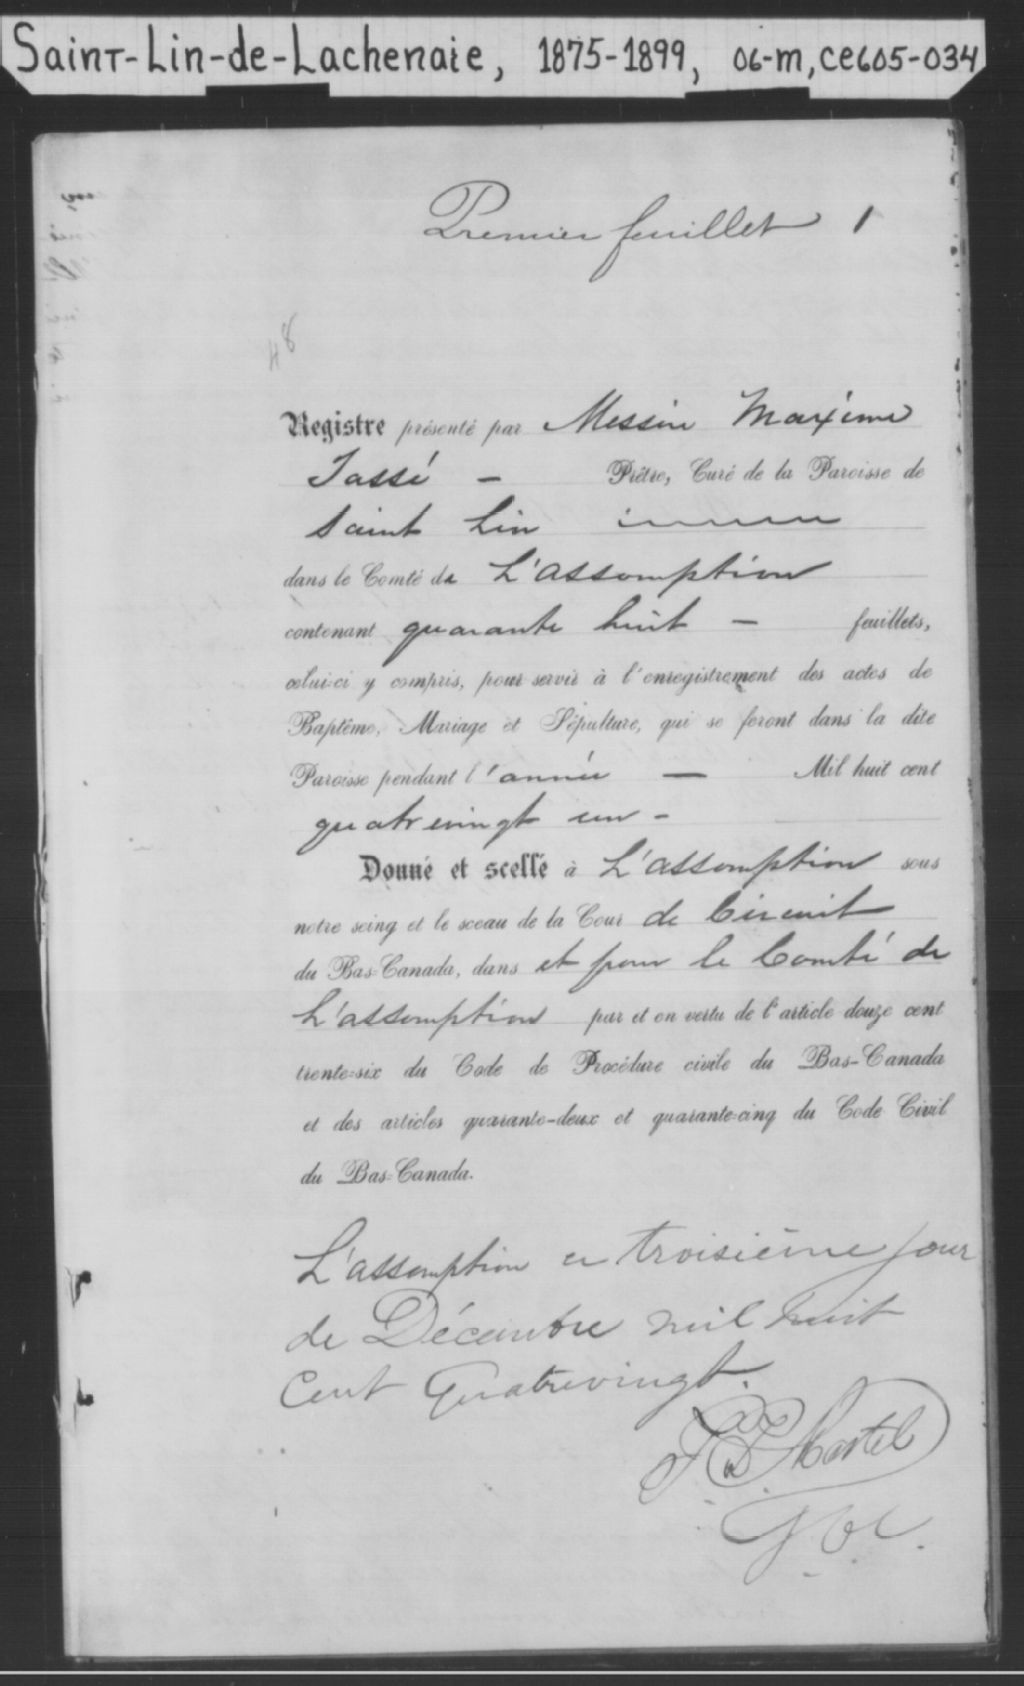 Saint-Lin-de-Lachenaie, 1875-1899, 06-m, CE605-034
Premier feuillet 1
48
Registre présenté par Messire Maxime
Tassé — Prêtre, Curé de la Paroisse de
Saint Lin
dans le Comté de L'assomption
contenant quarante huit — feuillets,
celui-ci y compris, pour servir à l'enregistrement des actes de
Baptême, Mariage et Sépulture, qui se feront dans la dite
Paroisse pendant l'année — Mil huit cent
quatrevingt un -
Donné et scellé à L'assomption sous
notre seing et le sceau de la Cour de Circuit
du Bas-Canada, dans et pour le Comté de
L'assomption par et en vertu de l'article douze cent
trente-six du Code de Procédure civile du Bas-Canada
et des articles quarante-deux et quarante-cinq du Code Civil
du Bas-Canada.
L'assomption ce troisième jour
de Décembre mil huit
Cent Quatrevingt.
Martel